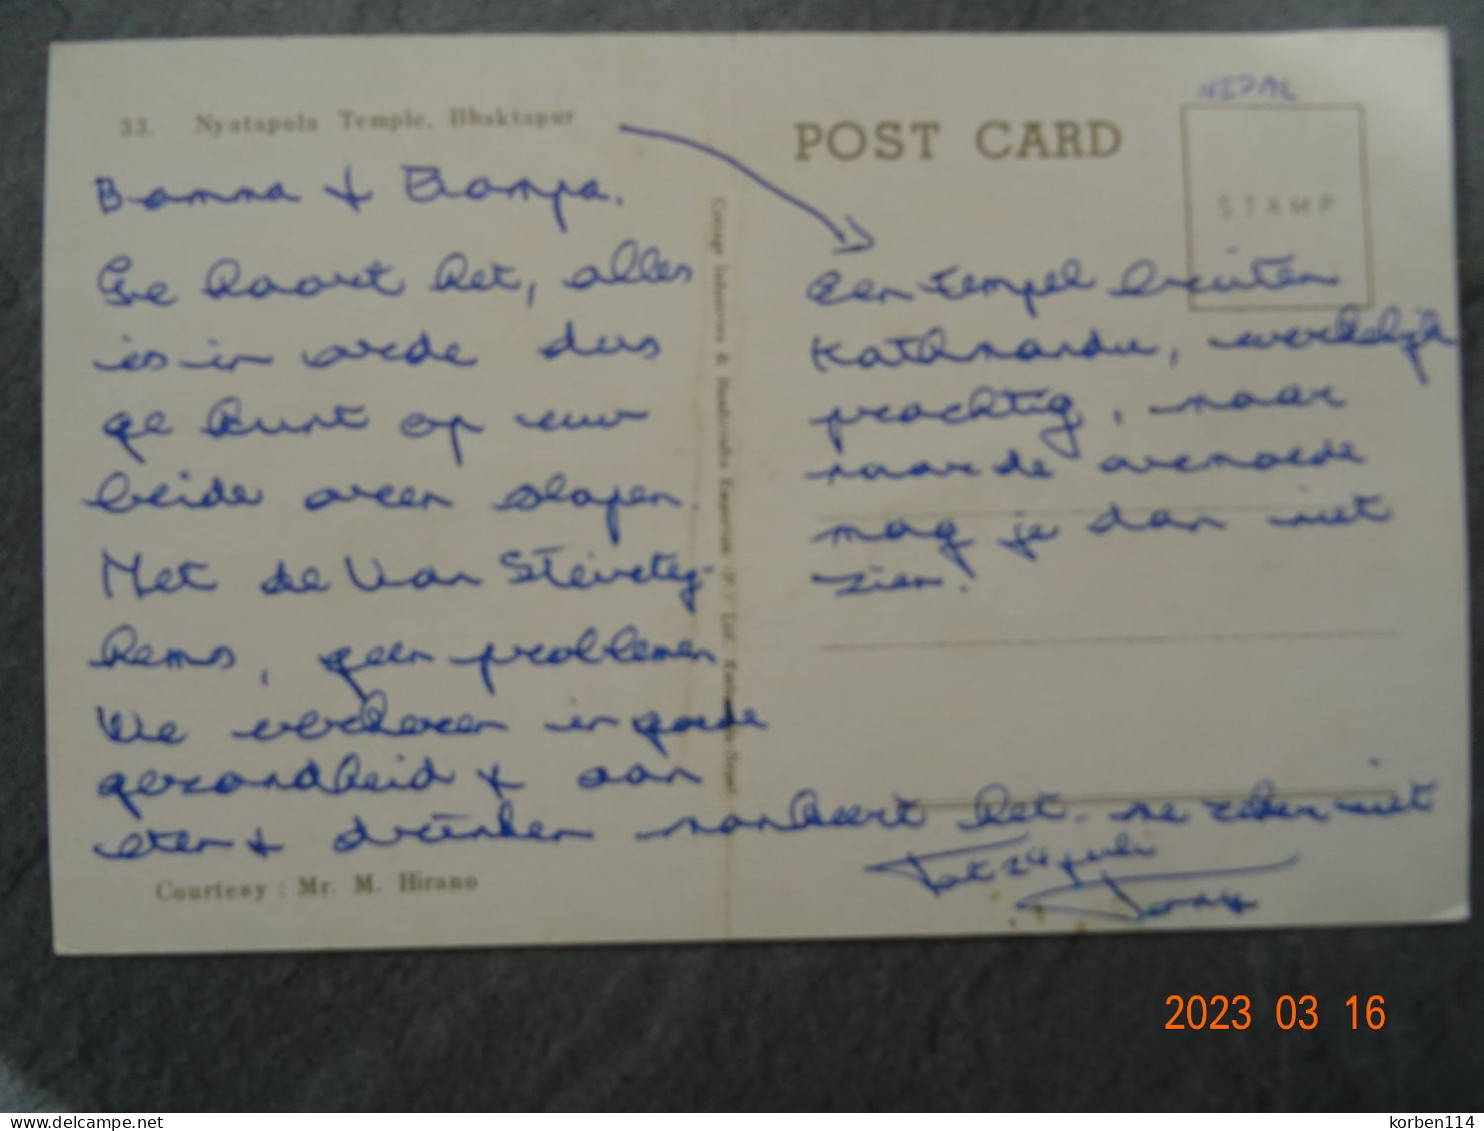 33. Nyatapola Temple, Bhaktapur
Bomma & Bompa.
Ge hoort het, alles
is in orde dus
ge kunt op uw
beide oren slapen.
Met de Van
geen problemen
We verkeren in goede
gezondheid & aan
eten & drinken mankeert het me zeker niet
Tot 24 juli
Tony
Courtesy : Mr. M. Hirano
Cottage Industries & Handicrafts Emporium (P.) Ltd. Kathmandu-Nepal
POST CARD
NEPAL
STAMP
Een tempel buiten
Kathmandu, werkelijk
prachtig, maar
naar de armoede
mag je dan niet
zien!
2023 03 16
delcampe.net
korben114